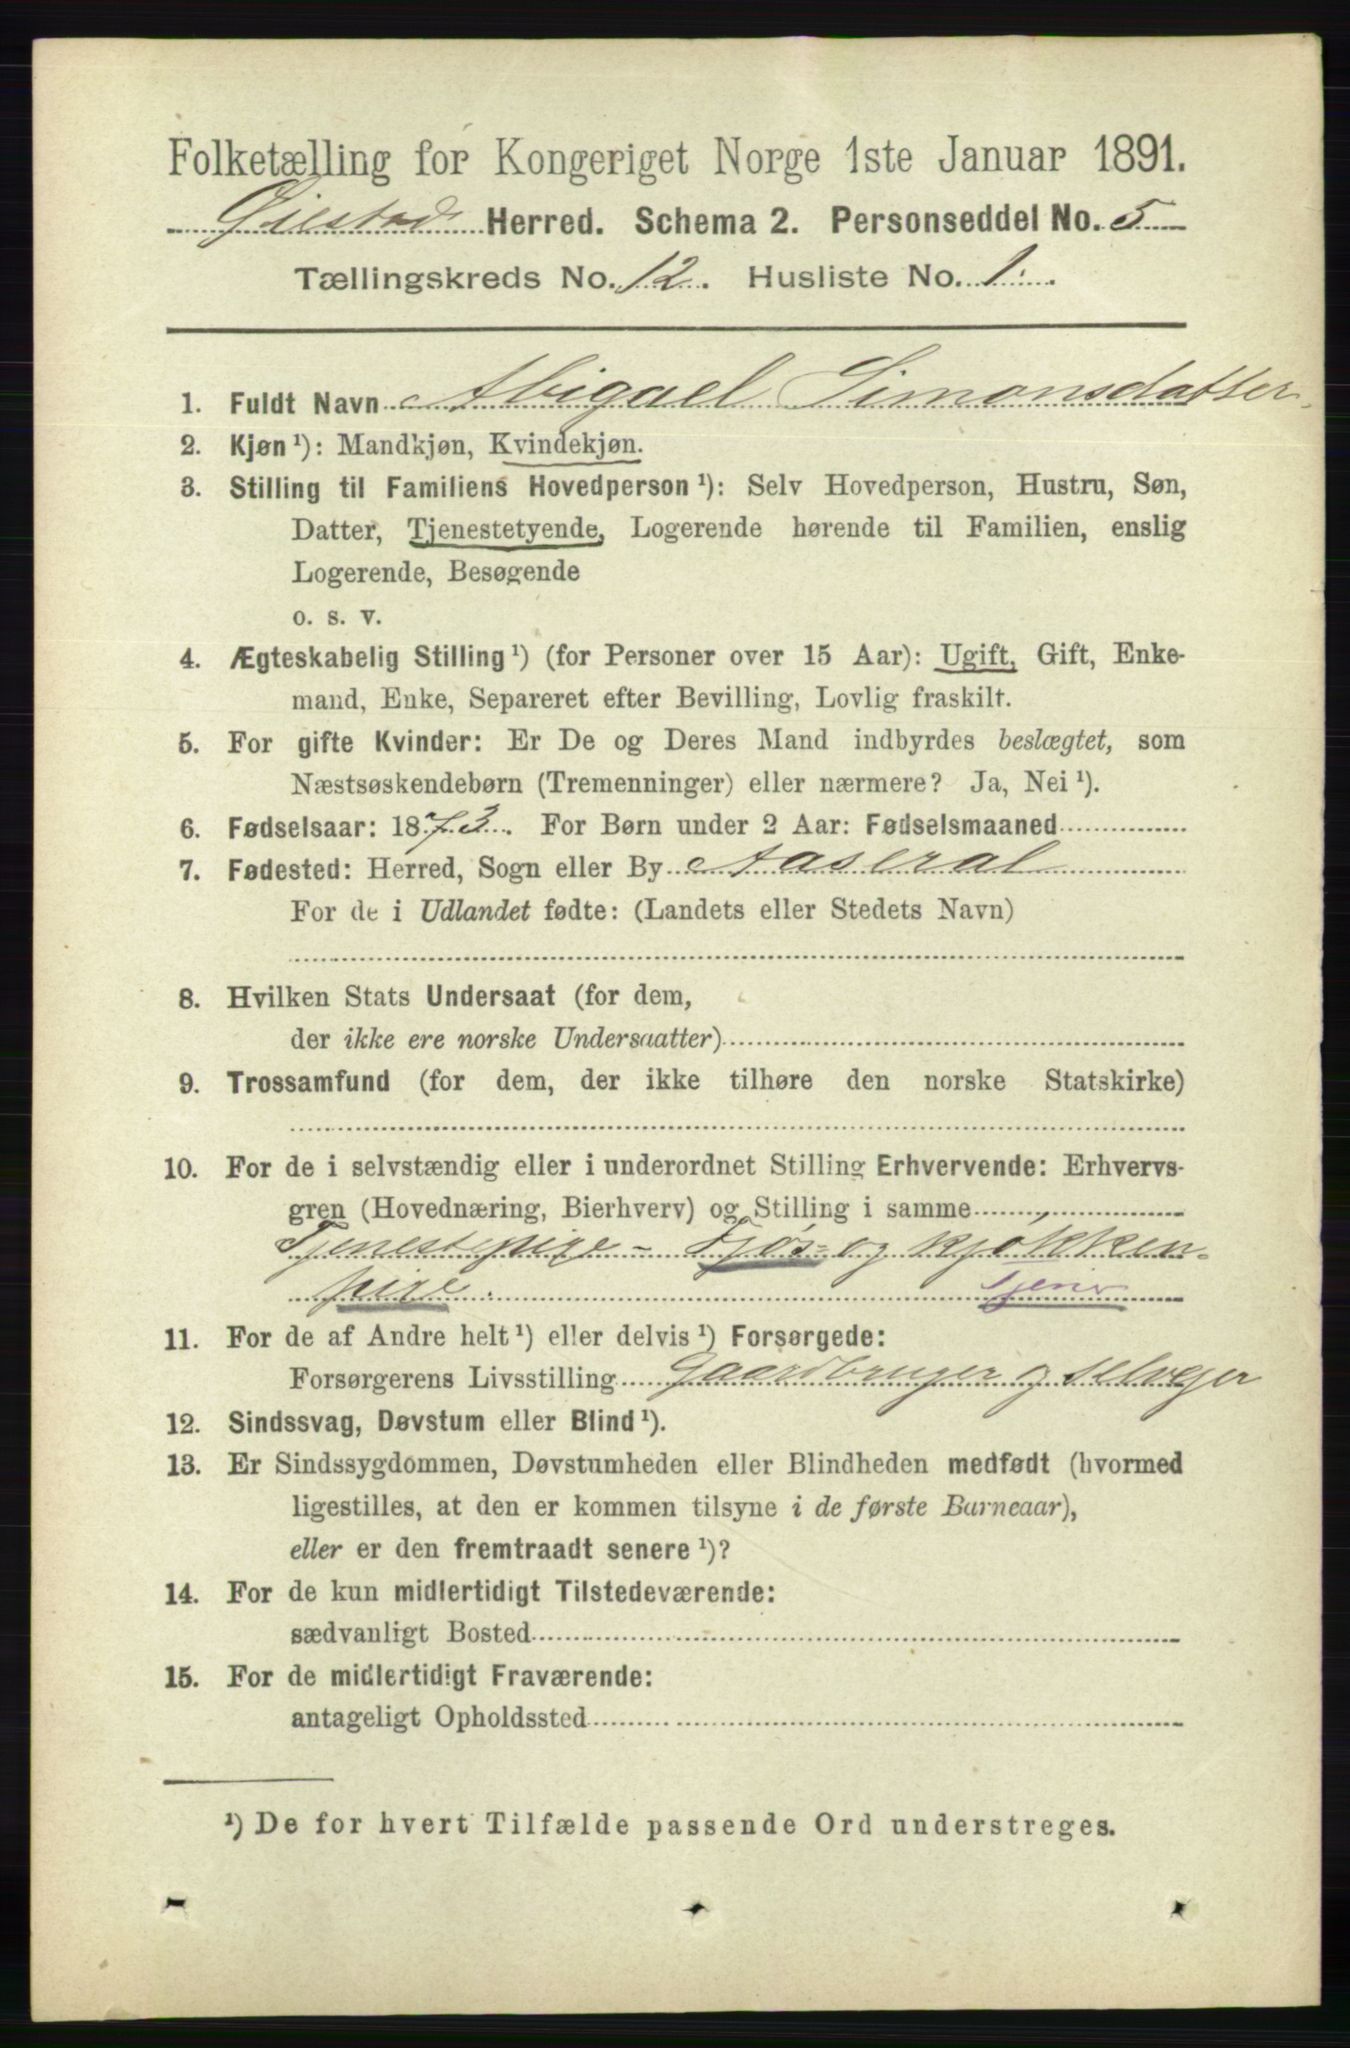 Folketælling for Kongeriget Norge 1ste Januar 1891.
Øiestad Herred. Schema 2. Personseddel No. 5
Tællingskreds No. 12. Husliste No. 1.
1. Fuldt Navn Abigael Simonsdatter.
2. Kjøn ¹): Mandkjøn, Kvindekjøn.
3. Stilling til Familiens Hovedperson ¹): Selv Hovedperson, Hustru, Søn,
Datter, Tjenestetyende, Logerende hørende til Familien, enslig
Logerende, Besøgende
o. s. v.
4. Ægteskabelig Stilling ¹) (for Personer over 15 Aar): Ugift, Gift, Enke-
mand, Enke, Separeret efter Bevilling, Lovlig fraskilt.
5. For gifte Kvinder: Er De og Deres Mand indbyrdes beslægtet, som
Næstsøskendebørn (Tremenninger) eller nærmere? Ja, Nei ¹).
6. Fødselsaar: 1873. For Børn under 2 Aar: Fødselsmaaned
7. Fødested: Herred, Sogn eller By Aaseral
For de i Udlandet fødte: (Landets eller Stedets Navn)
8. Hvilken Stats Undersaat (for dem,
der ikke ere norske Undersaatter)
9. Trossamfund (for dem, der ikke tilhøre den norske Statskirke)
10. For de i selvstændig eller i underordnet Stilling Erhvervende: Erhvervs-
gren (Hovednæring, Bierhverv) og Stilling i samme
Tjenestepige - Fjøs- og kjøkken-
pige.
11. For de af Andre helt ¹) eller delvis ¹) Forsørgede:
Forsørgerens Livsstilling Gaardbruger og selvejer
12. Sindssvag, Døvstum eller Blind ¹).
13. Er Sindssygdommen, Døvstumheden eller Blindheden medfødt (hvormed
ligestilles, at den er kommen tilsyne i de første Barneaar),
eller er den fremtraadt senere ¹)?
14. For de kun midlertidigt Tilstedeværende:
sædvanligt Bosted
15. For de midlertidigt Fraværende:
antageligt Opholdssted
¹) De for hvert Tilfælde passende Ord understreges.